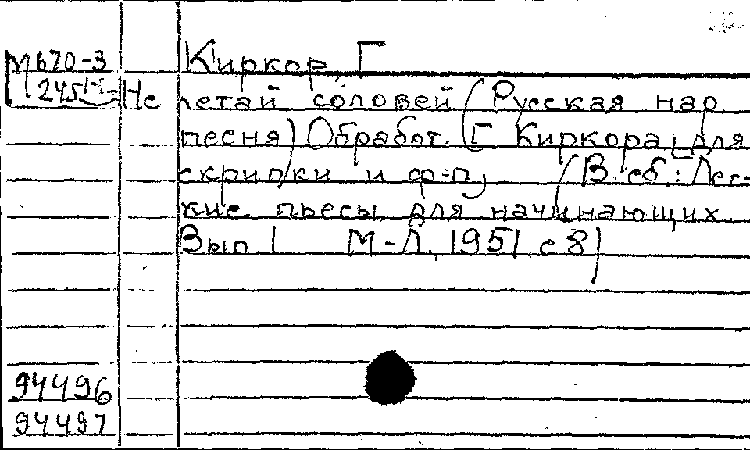 М670-3 Киркор, Г
245 Не летай соловей (Русская нар
песня) Обработ. [Г Киркора] для
скрипки и ф-п, (В сб: Лег-
кие пьесы для начинающих
Вып 1 М-Л, 1951 с 8)
94496
94497